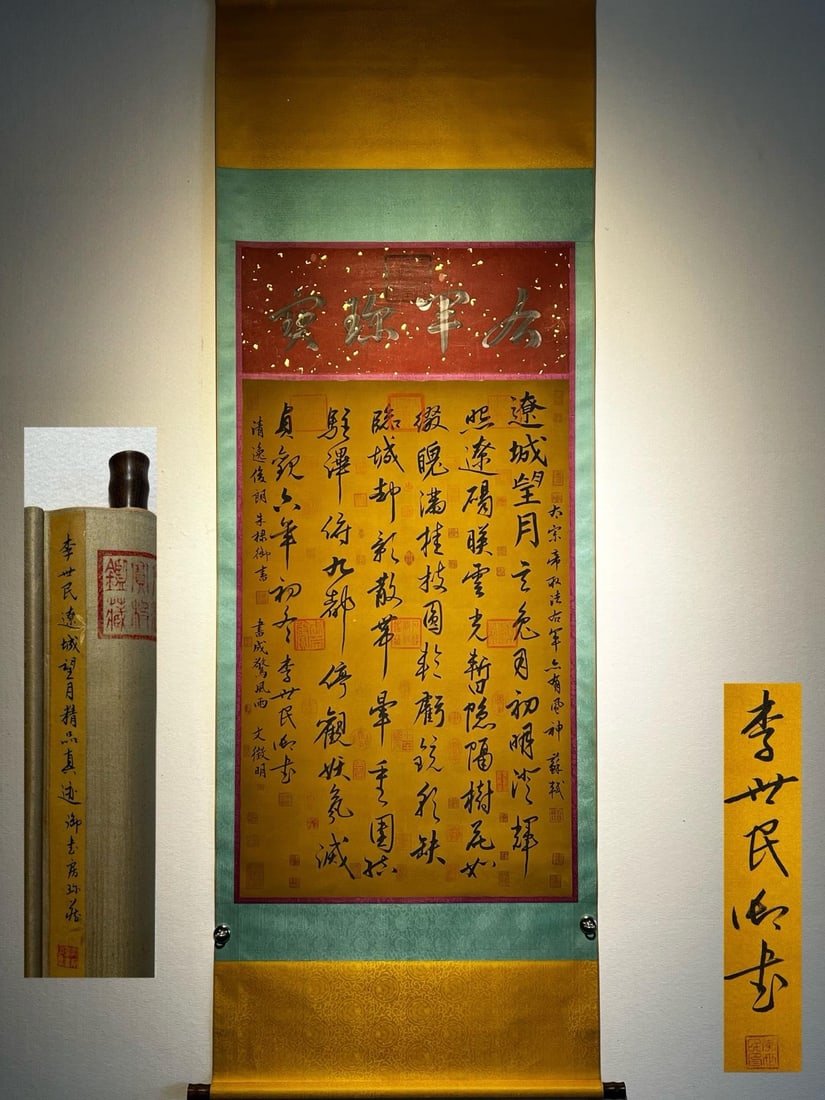 罕珍寶
太宗帝取法右軍亦有風神 蘇軾
遼城望月玄兔月初明澄輝
照遼碣映雲光暫隱隔樹花如
綴魄滿桂枝圓輪虧鏡彩缺
臨城却影散帶暈重圍結
駐蹕俯九都停觀妖氛滅
貞觀六年初冬李世民御书
清逸俊朗 朱棣御書 書成驚風雨 文徵明
李世民遼城望月精品真迹御书房珍藏
鑑藏
李世民御书